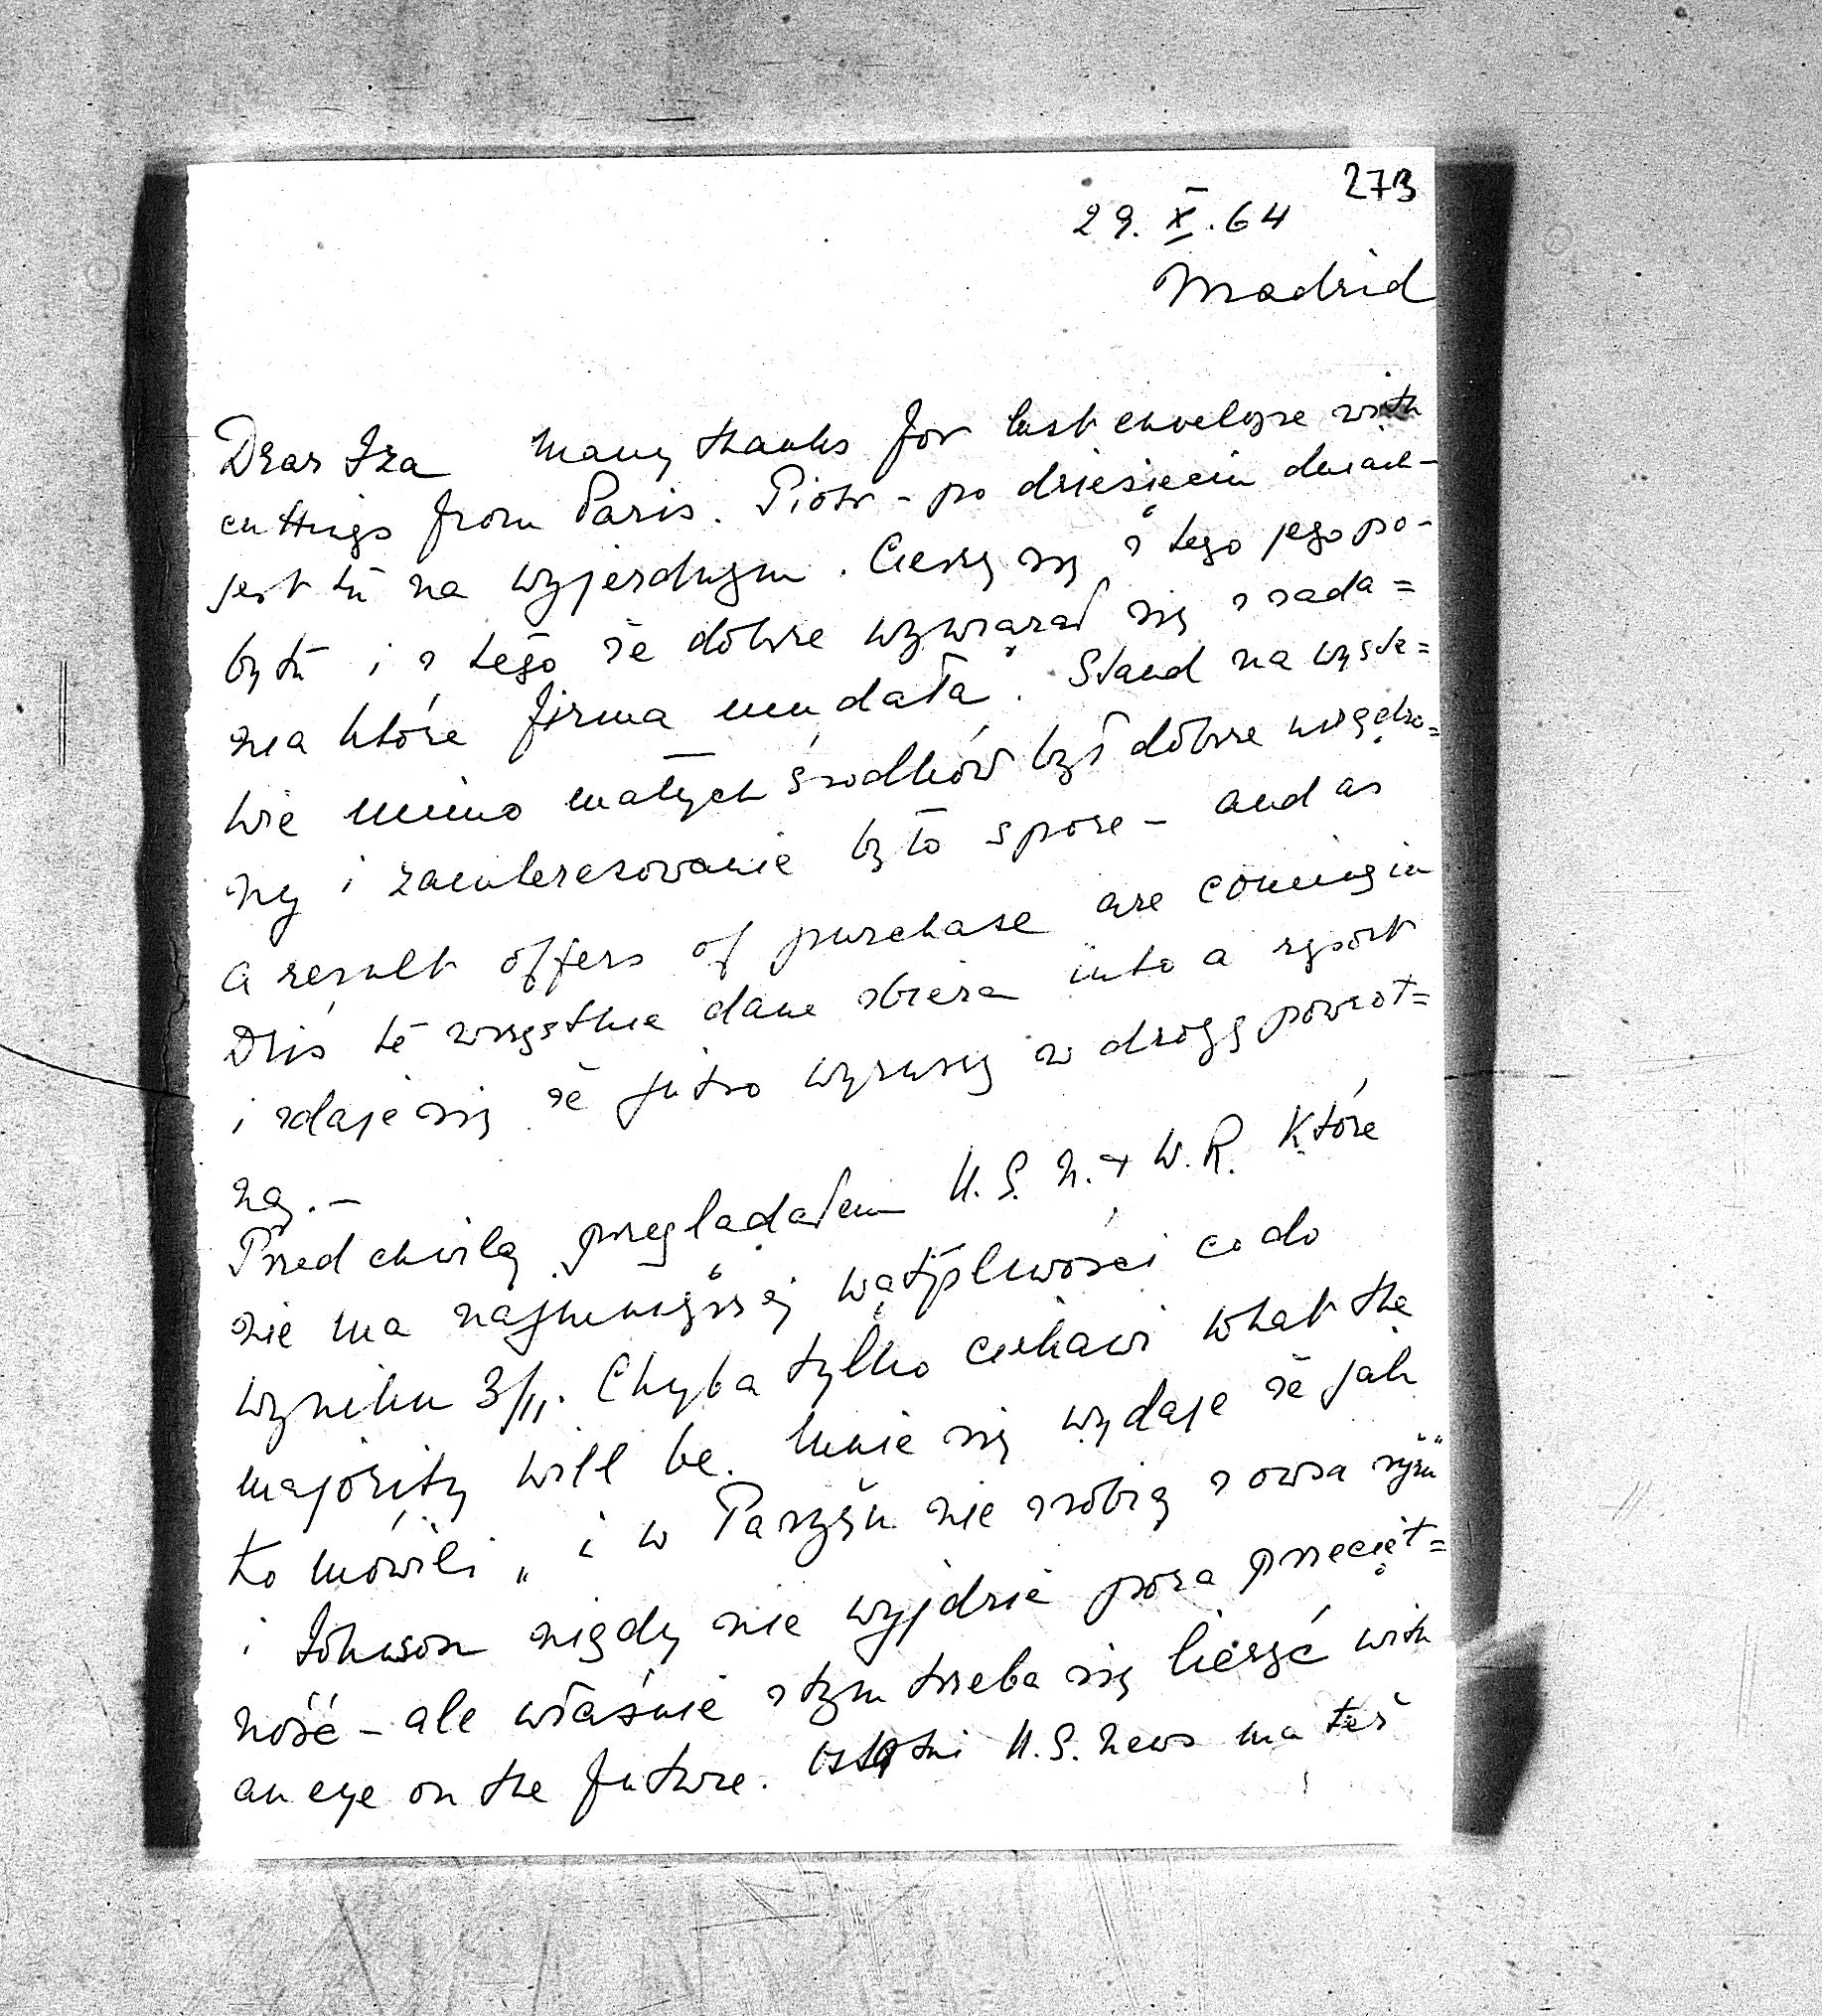 273
29. X. 64
Madrid
Dear Iza many thanks for last envelope with
cuttings from Paris. Piotr - po dziesięciu dniach -
jest tu na wyjezdnym. Cieszę się z tego jego po-
bytu i z tego że dobrze wywiązał się z zada=
nia które firma mu dała. Stand na wysta=
wie mimo małych środków był dobrze urządzo=
ny i zainteresowanie było spore - and as
a result offers of purchase are coming in
Dziś te wszystkie dane zbiera into a report
i zdaje się że jutro wyruszy w drogę powrot=
ną. -
Przed chwilą przeglądałem U.S.N. & W.R. które
nie ma najmniejszej wątpliwości co do
wyniku 3/11. Chyba tylko ciekawi what the
majority will be. Mnie się wydaje że jak
to mówili „i w Paryżu nie zrobią z owsa ryżu"
i Johnson nigdy nie wyjdzie poza przecięt=
ność - ale właśnie z tym trzeba się liczyć with
an eye on the future. Ostatni U.S. News ma też